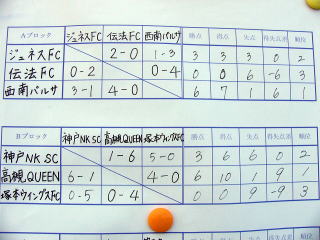 Aブロック ジュネスFC 伝法FC 西南バルサ 勝点 得点 失点 得失点差 順位
ジュネスFC 2-0 1-3 3 3 3 0 2
伝法FC 0-2 0-4 0 0 6 -6 3
西南バルサ 3-1 4-0 6 7 1 6 1
Bブロック 神戸NKSC 高槻QUEEN 塚本ウイングスFC 勝点 得点 失点 得失点差 順位
神戸NKSC 1-6 5-0 3 6 6 0 2
高槻QUEEN 6-1 4-0 6 10 1 9 1
塚本ウイングスFC 0-5 0-4 0 0 9 -9 3